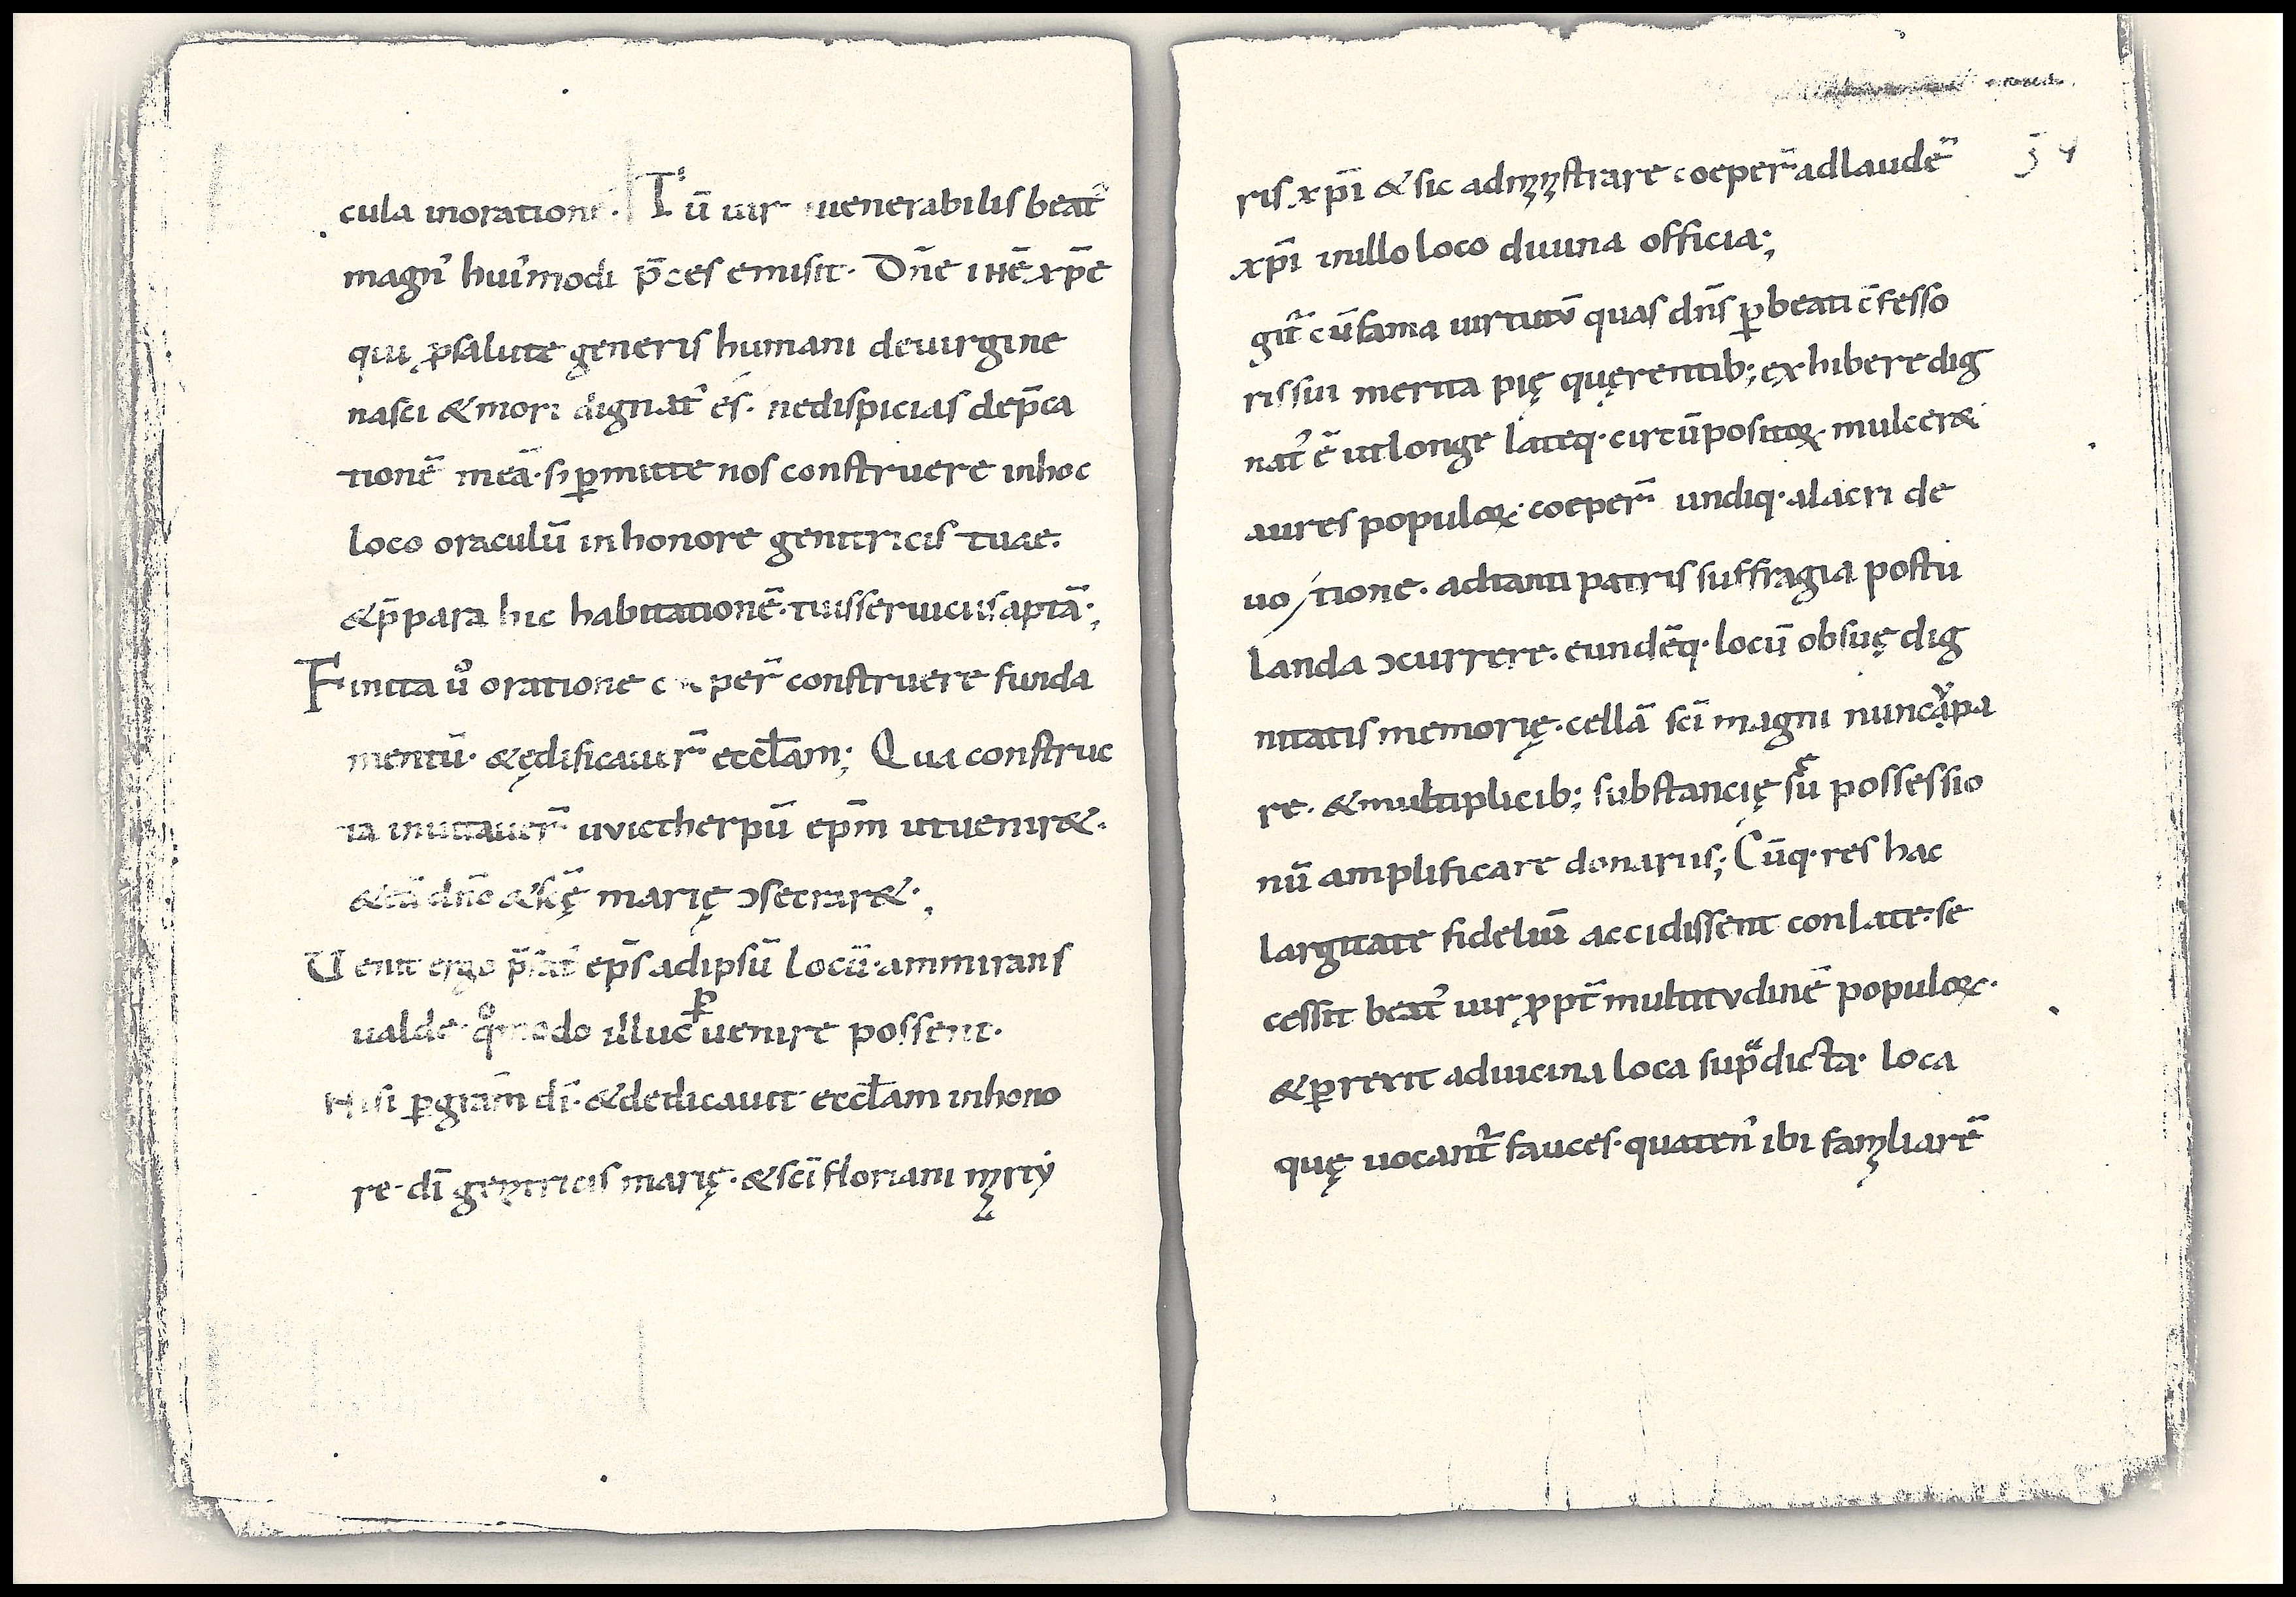 cula inoratione. Tū uir uenerabilis beat᾽
magn᾽ hui᾽modi p̄ces emisit. Dn̄e ihē xp̄e
qui ꝓsalute generis humani deuirgine
nasci &mori dignat᾽ es. nedispicias dep̄ca
tionē meā. s; ꝑmitte nos construere inhoc
loco oraculū inhonore genitricis tuae.
&p̄para hic habitationē. tuisseruiciis aptā.,
Finita ů oratione coeper̄ construere funda
mentū. &ędificauer̄ eccłam; Qua construc
ta inuitauer̄ uvictherpū ep̄m utuenir&.
&eā dn̄o &scę̄ marię ɔsecrar&.,
Uenit ergo p̄fat᾽ ep̄s adipsū locū. ammirans
ualde. qͦmodo illuc ꝑuenire possent.
Nisi ꝑgrām dī. &dedicauit eccłam inhono
re. dī genitricis marię. &scī floriani mrty
34
ris xp̄i &sic administrare coeper̄ adlaudē
xp̄i inillo loco diuina officia.,
git᷑ cūfama uirtutū quas dn̄s ꝑbeati c̄fesso
rissui merita pię quęrentib; exhibere dig
nat᾽ ē utlonge lateq. circūpositoꝝ. mulcer&
aures populoꝝ. coeper̄ undiq. alacri de
uo/tione. adtanti patris suffragia postu
landa ɔcurrere. eundēq. locū obsuę dig
nitatis memorię. cellā scī magni nuncupa
re. &multiplicib; substancię suaꝝ possessio
nū amplificare donariis; Cūq. res hac
largitate fideliū accidissent conlate. se
cessit beat᾽ uir ꝓpt̄ multitvdinē populoꝝ.
&ꝑrexit aduicina loca sup̄dicta. loca
quę uocant᷑ fauces. quaten᾽ ibi familiarē